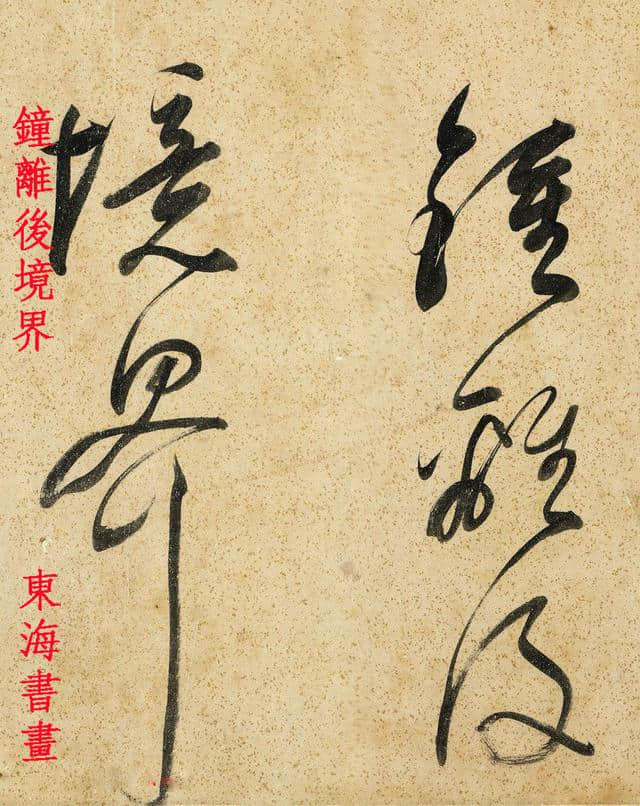 鍾離後
境界
鐘離後境界
東海書畫